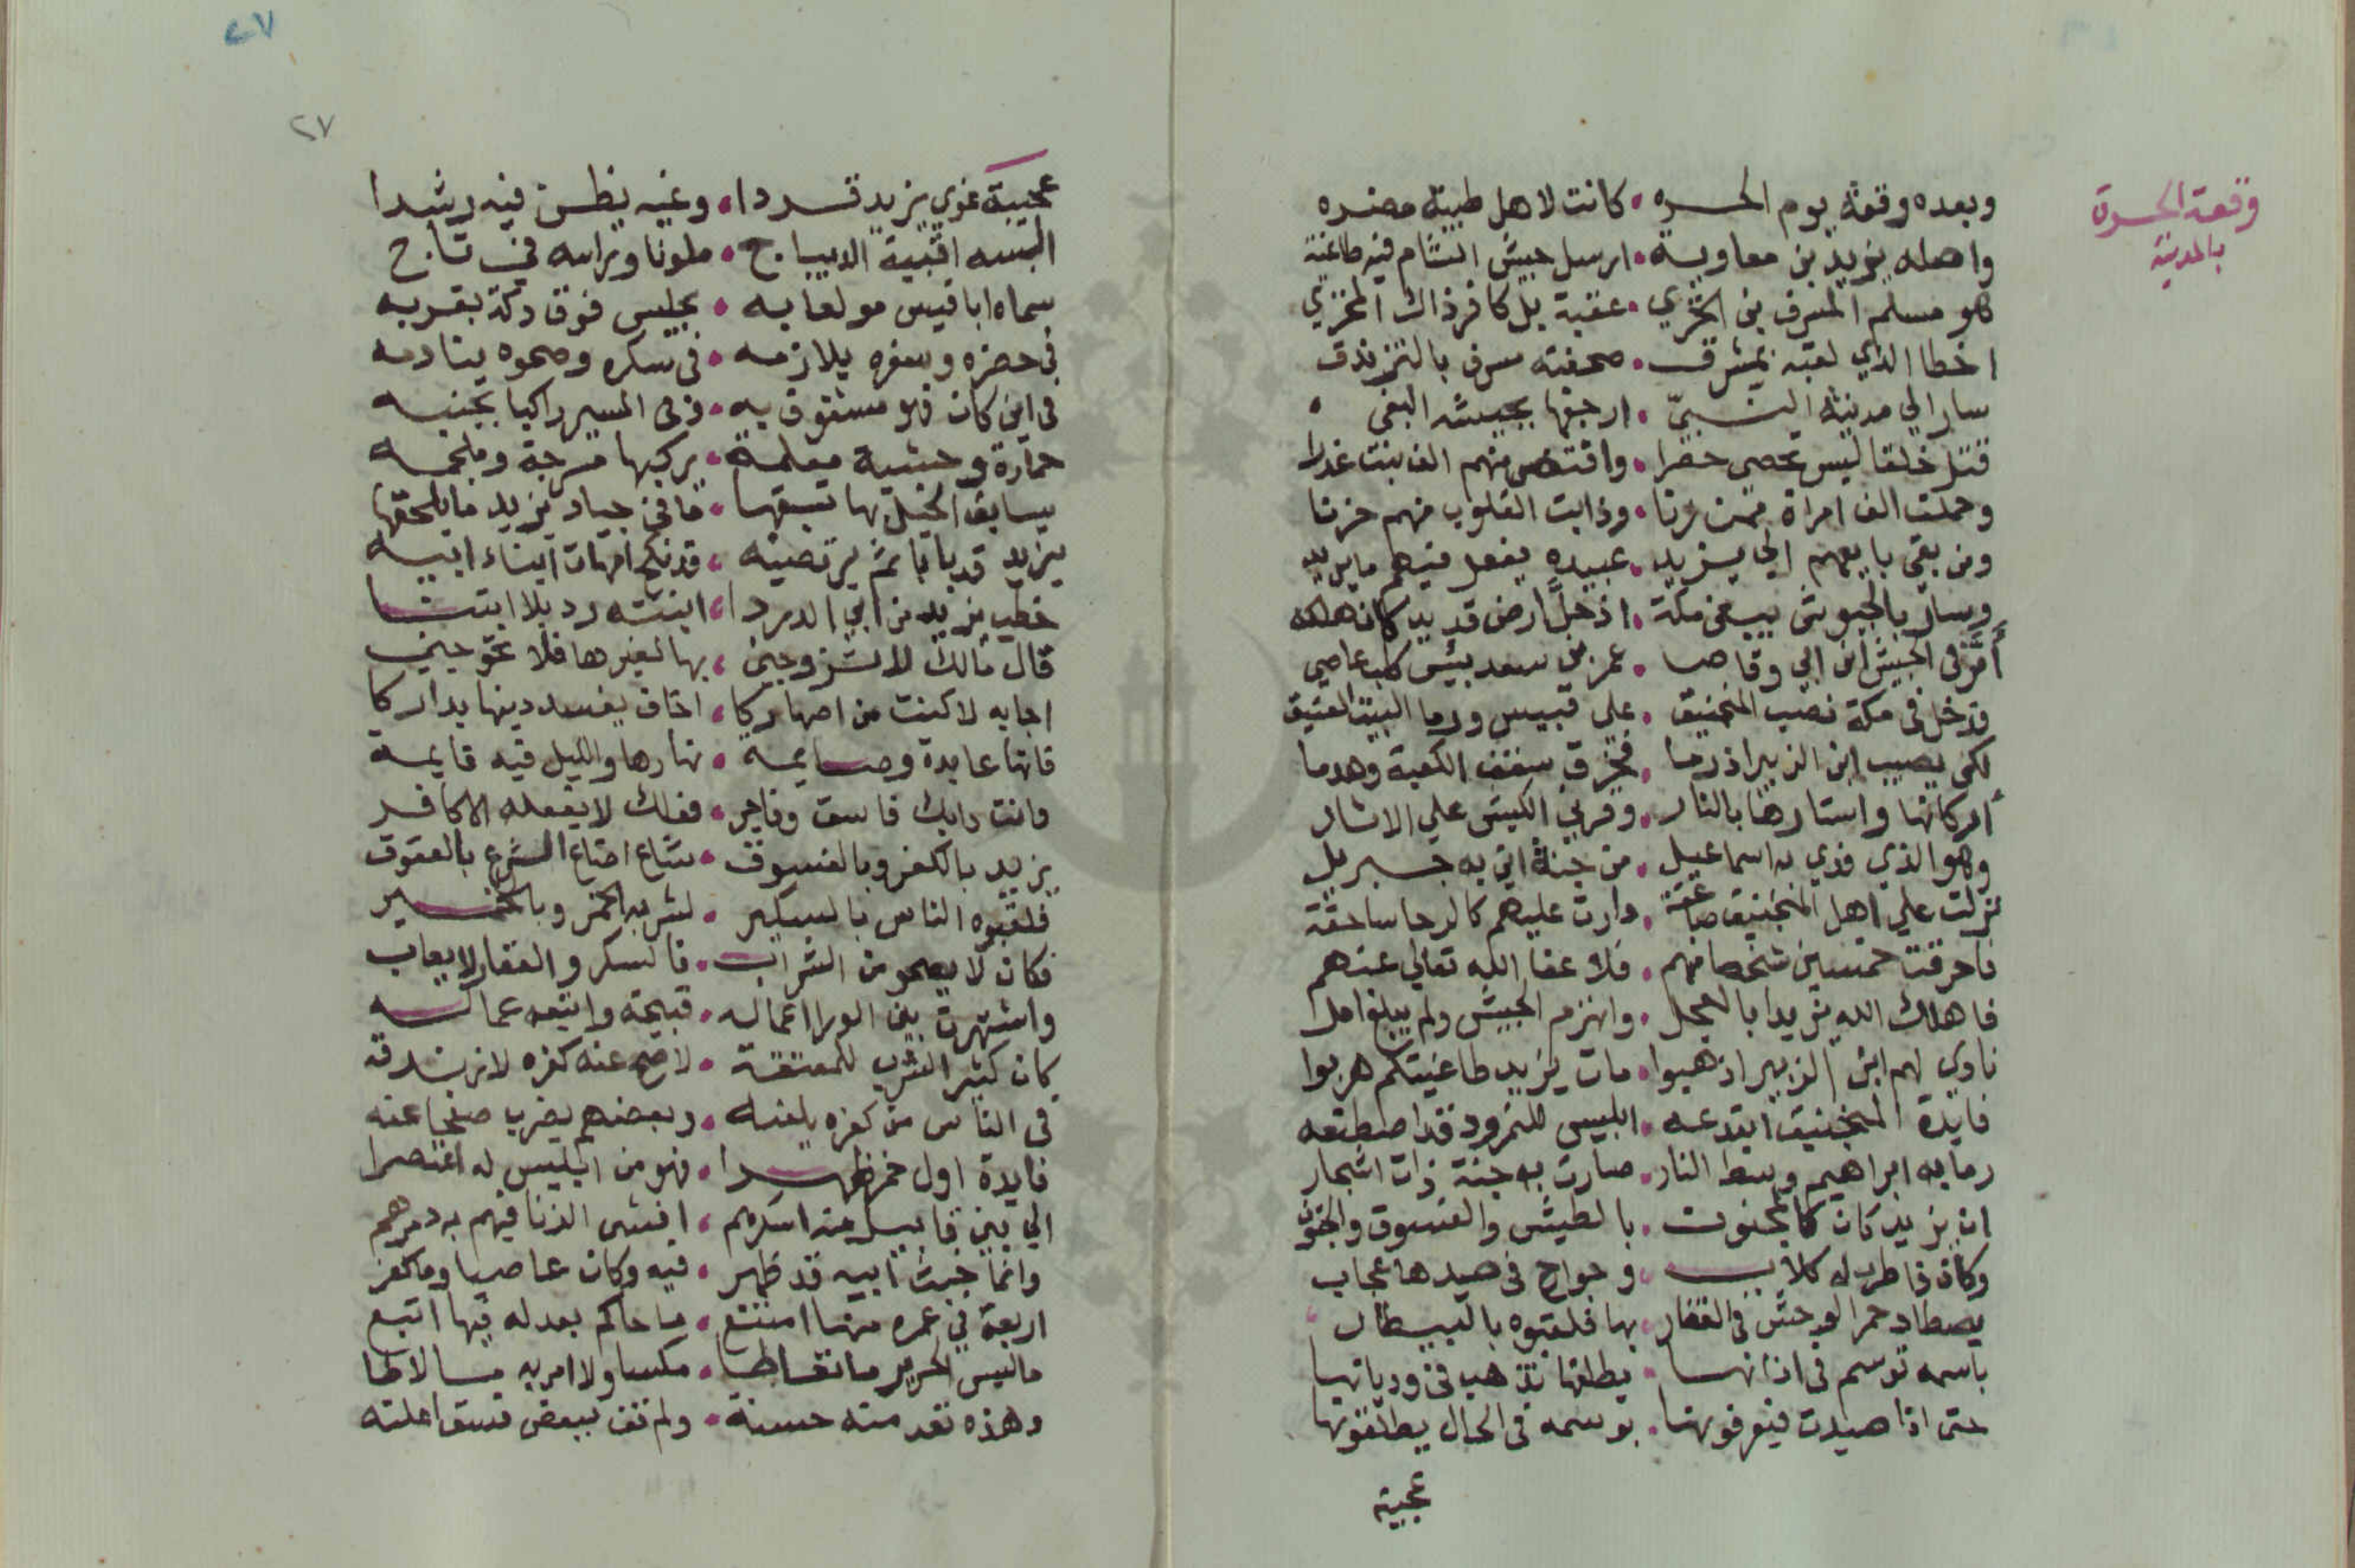 وقعة الحرة
بالمدينة
وبعده وقعة يوم الحره • كانت لاهل طيبة مضره
واصله يزيد بن معاوية • ارسل جيش الشام فيه طاغية
هو مسلم المسرف بن المري • عقبة بل كافر ذاك
اخطا الذي لقبه بمشرف • صحفته مسرف بالتزندف
سار الي مدينة النبيّ • ارجفها بجيشه البغي
قتل خلقا ليس تحصى حصرا • وافتض منهم الف بنت غدرا
وحملت الف امراة ممن زنا • وذابت القلوب منهم حزنا
ومن بقي بايعهم الي يزيد • عبيده يفعل فيهم ما يريد
وسار بالجيوش يبغي مكة • اذ حل ارض قديد كان هلكه
أمّر في الجيش ابن ابي وقاصا • عمر بن سعد بئس كلب عاصي
فدخل في مكة نصب المنجنيق • علي قبيس ورما البيت العتيق
لكي يصيب ابن الزبير اذ رما • فخرق سقف الكعبة وهدما
اركانها واستارها بالنار • وقرني الكبش علي الاثار
وهو الذي فدي به اسماعيل • من جنة اتي به جبريل
نزلت علي اهل المنجنيق صاعقة • دارت عليهم كالرحا ساحقة
فاحرقت خمسين شخصا منهم • فلا عفا الله تعالي عنهم
فاهلك الله يزيدا بالعجل • وانهزم الجيش ولم يبلغ امل
نادي لهم ابن الزبير اذهبوا • مات يزيد طاغيتكم هربوا
فايدة المنجنيق ابتدعه • ابليس للنمرود قد اصطنعه
رما به ابراهيم وسط النار • صارت به جنة ذات اشجار
ان يزيد كان كالمجنون • بالطيش والفسوق والجنون
وكان خاطر له كلاب • وجوارح في صيدها عجاب
يصطاد حمر الوحش في القفار • بها فلقبوه بالبيطار
باسمه توسم في اذانها • يطلقها تذهب في وديانها
حتى اذا صيدت فيعرفونها • بوسمه في الحال يطلقونها
عجيبة
٢٧
٢٧
عجيبة غوي يزيد قردا • وغيه يظن فيه رشدا
البسه اقبية الديباج • ملونا وبراسه في تاج
سماه ابا قيس مولعا به • يجلس فوق دكة بقربه
في حضره وسفره يلازمه • في سكره وصحوه ينادمه
في اين كان فهو مشغوف به • وفي المسير راكبا بجنبه
حمارة وحشية معلمة • يركبها مسرجة وملجمه
يسابق الخيل بها تسبقها • ما في جياد يزيد ما يلحقها
يزيد قد باباثم يرتضيه • قد نكح امهات ابناء ابيه
خطب يزيد من ابي الدردا • ابنته رد بلا
قال مالك لا تتزوجين • بها لغيرها فلا تحوجيني
اجابه لا كنت من اصهاركا • اخاف يفسد دينها بداركا
فانها عابدة وصايمة • نهارها والليل فيه قايمة
وانت دابك فاسق وفاجر • فعلك لا يفعله الا كافر
يزيد بالكفر وبالفسوق • شاع اضاع الشرع بالعقوق
فلقبوه الناس بالسكير • لشربه الخمر وبالخمير
فكان لا يصحو من الشراب • فالسكر والعقار لا يعاب
واشتهرت بين الورا اعماله • قبيحة واتبعه عماله
كان كثير الشرب للمعتقة • لاصح عنه كفره لا زندقة
في الناس من كفره يلعنه • وبعضهم يضرب صفحا عنه
فايدة اول خمر ظهرا • فهو من ابليس له اعتصرا
الي بني قابيل منه اسكرهم • افشى الزنا فيهم به دمرهم
وانما خبث ابيه قد ظهر • فيه وكان عاصيا وما كفر
اربعة في عمره منها امتنع • ما حاكم بعد له فيها اتبع
ما لبس الحرير ما تعاطا • مكسا ولا امر به
وهذه تعد منه حسنة • ولم تف ببعض فسق اعلنه